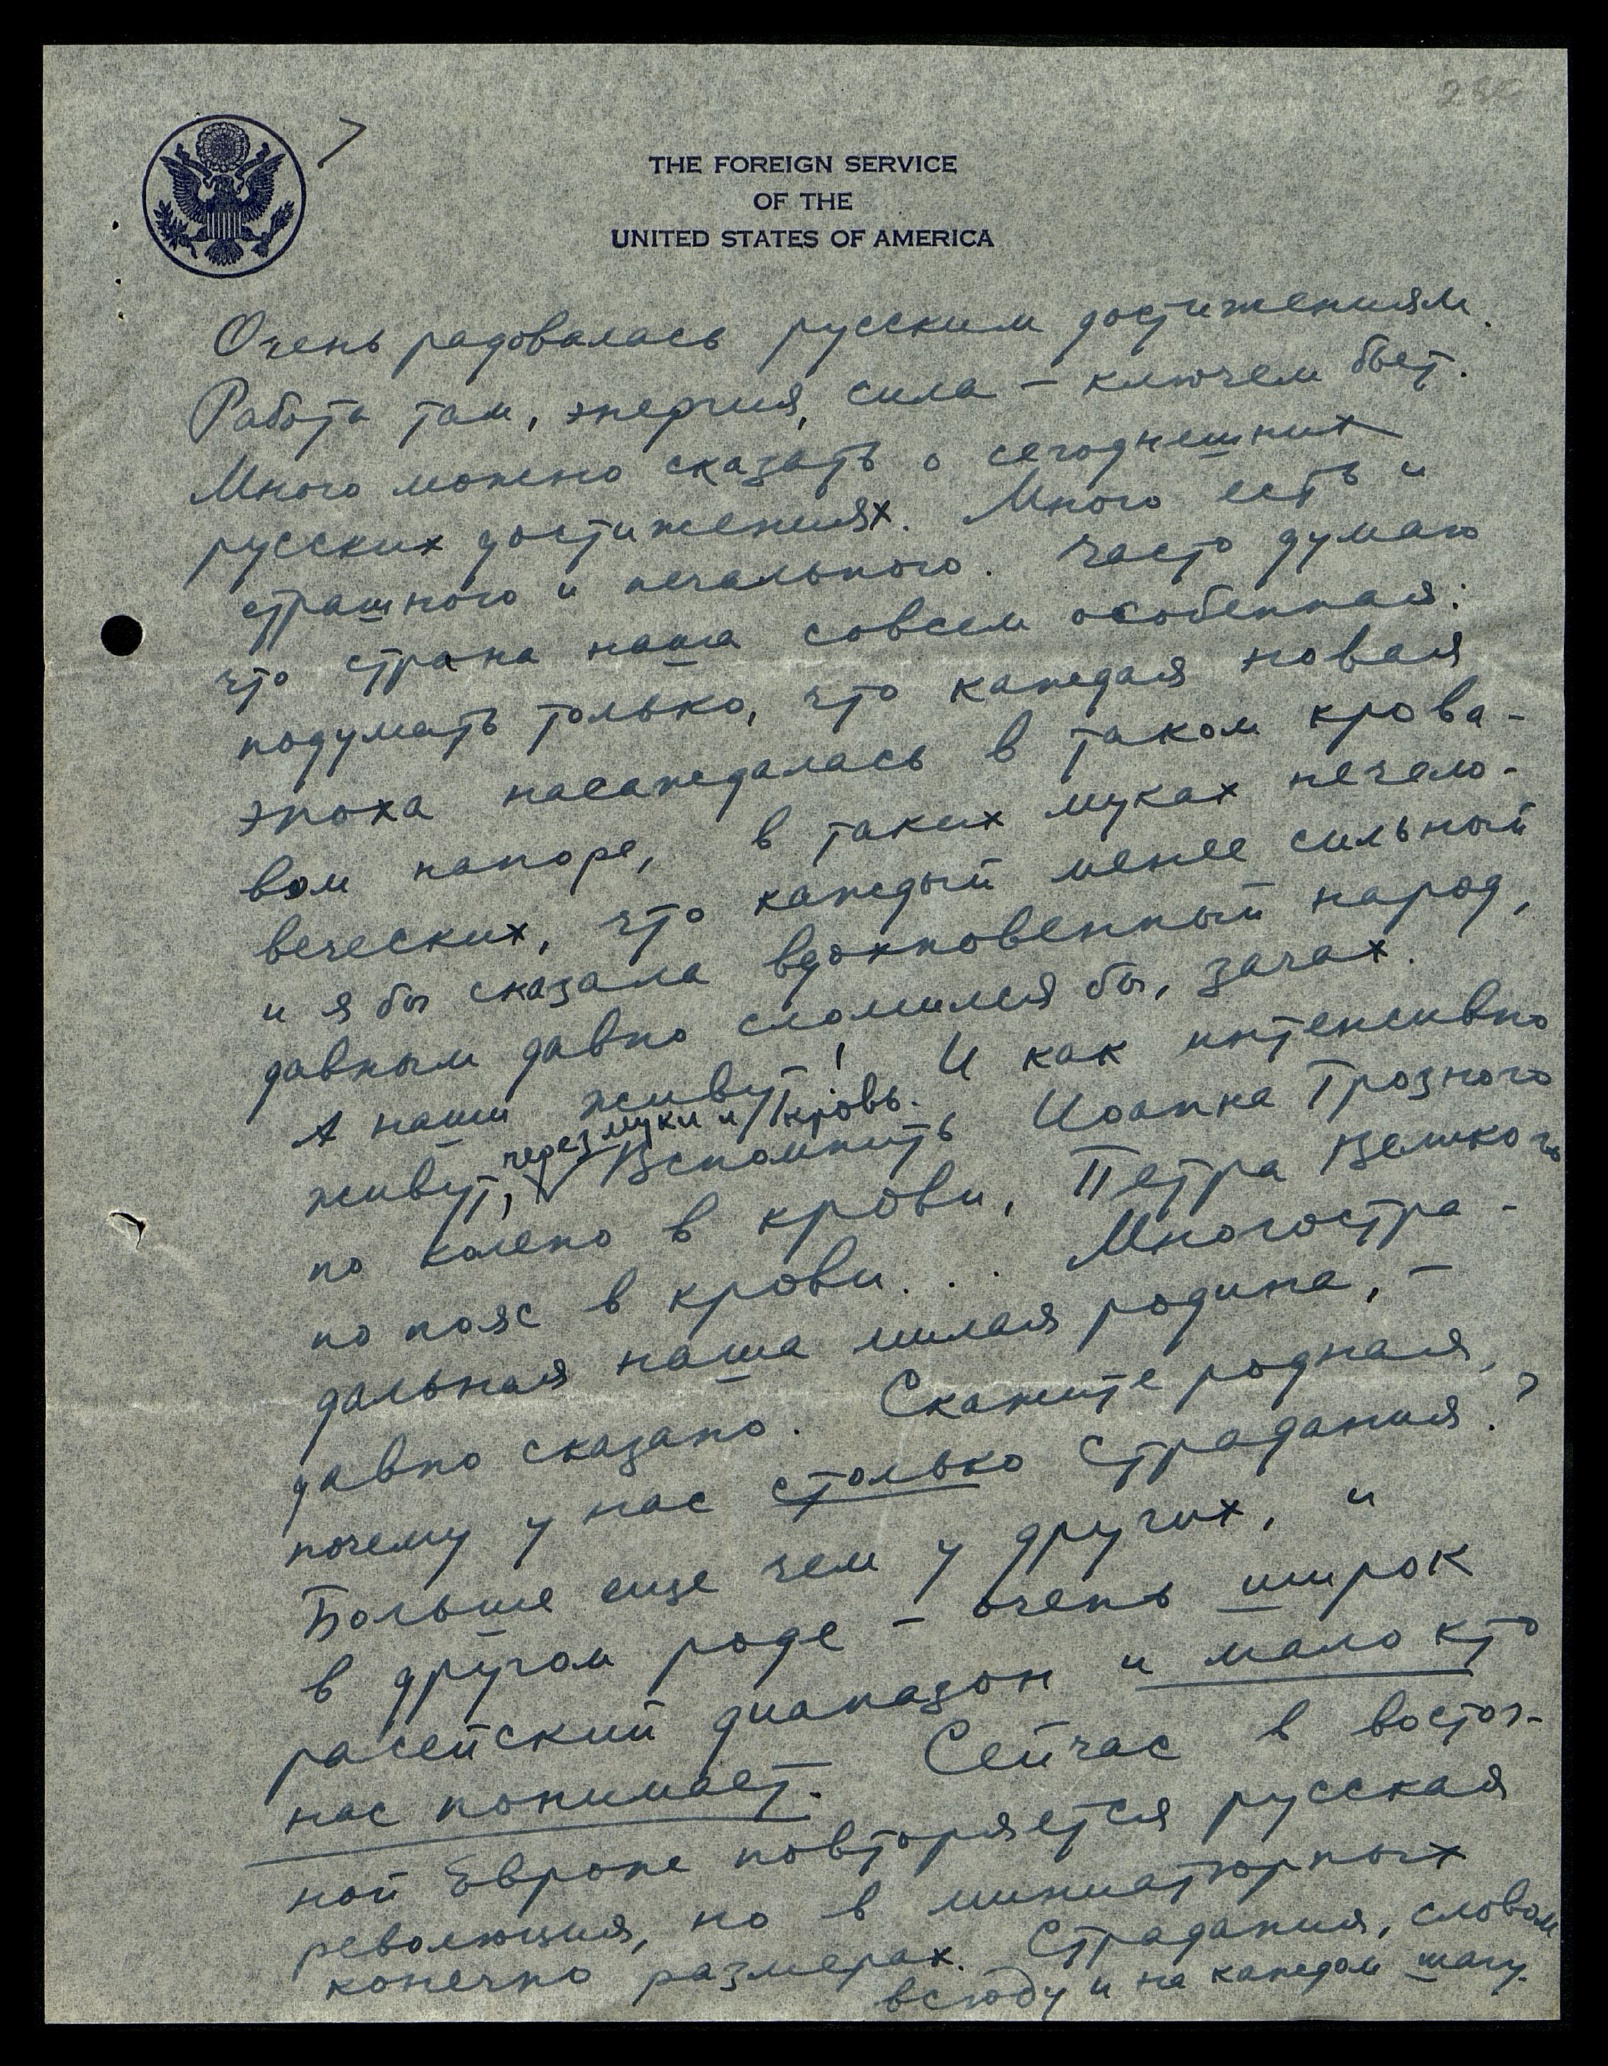 THE FOREIGN SERVICE
OF THE
UNITED STATES OF AMERICA
Очень радовалась русским достижениям.
Работа там, энергия, сила – ключем бьет.
Много можно сказать о сегоднешних
русских достижениях. Много есть и
страшного и печального. Часто думаю
что страна наша совсем особенная:
подумать только, что каждая новая
эпоха насаждалась в таком крова-
вом напоре, в таких муках нечело-
веческих, что каждый менее сильный
и я бы сказала вдохновенный народ,
давным давно сломился бы, зачах.
А наши живут! И как интенсивно
живут, через муки и кровь. Вспомнить Иоанна Грозного
по колено в крови, Петра Великого
по пояс в крови... Многостра-
дальная наша милая родина, –
давно сказано. Скажите родная,
почему у нас столько страдания?
Больше еще чем у других, и
в другом роде – очень широк
расейский диапазон и мало кто
нас понимает. Сейчас в восточ-
ной Европе повторяется русская
революция, но в миниатюрных
конечно размерах. Страдания, словом
всюду и на каждом шагу.